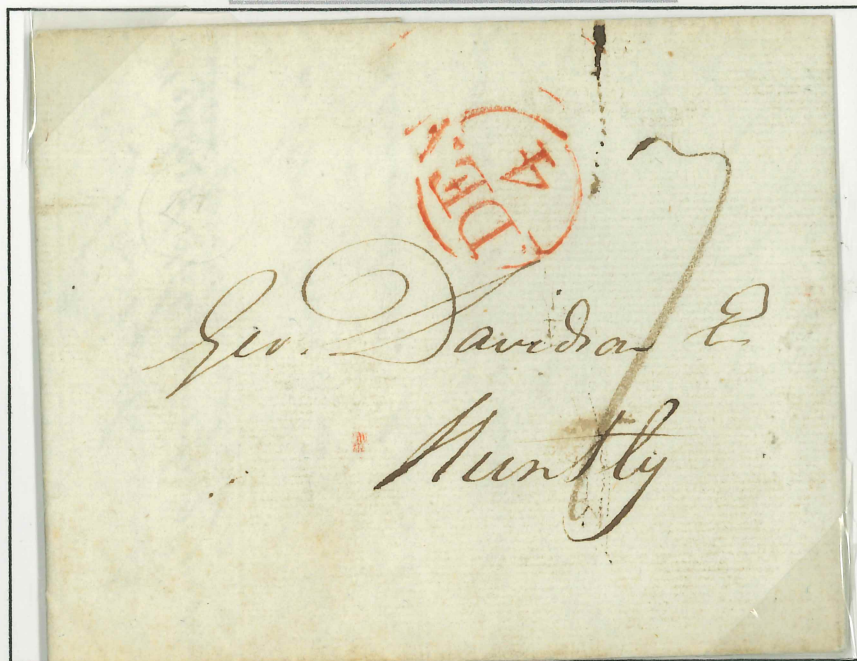 DE
4
7
Geo. Davidson E
Huntly